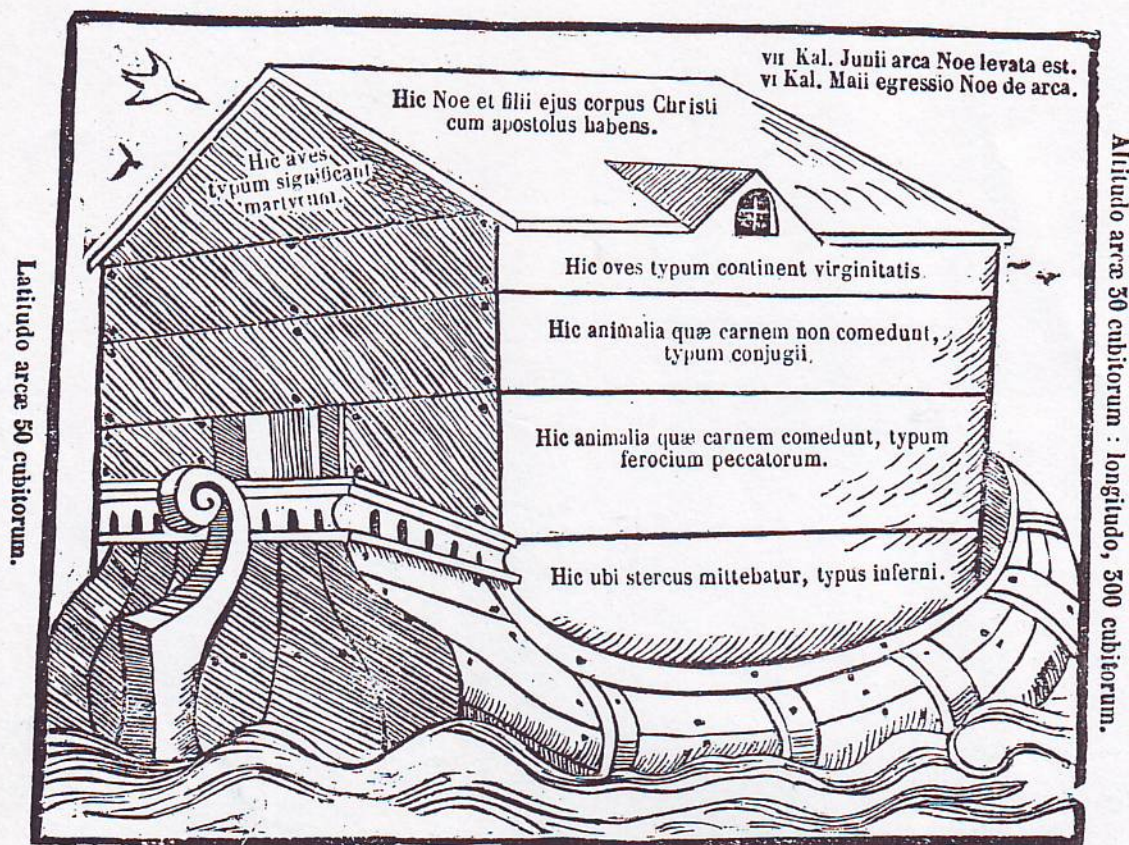 vii Kal. Junii arca Noe levata est.
vi Kal. Maii egressio Noe de arca.
Hic Noe et filii ejus corpus Christi
cum apostolus habens.
Hic aves
typum significant
martyrum.
Hic oves typum continent virginitatis.
Hic animalia quæ carnem non comedunt,
typum conjugii.
Hic animalia quæ carnem comedunt, typum
ferocium peccatorum.
Hic ubi stercus mittebatur, typus inferni.
Latitudo arcæ 50 cubitorum.
Altitudo arcæ 30 cubitorum : longitudo, 300 cubitorum.